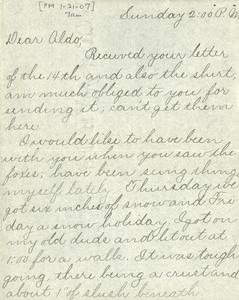 [PM 1-21-07]
7am
Sunday 2:00 P.M.
Dear Aldo;
Received your letter
of the 14th and also the shirt,
am much obliged to you for
sending it; can't get them
here.
I would like to have been
with you when you saw the
foxes; have been seeing things
myself lately. Thursday we
got six inches of snow and Fri
day a snow holiday. I got on
my old duds and let out at
1:00 for a walk. It was tough
going, there being a crust and
about 1" of slush beneath